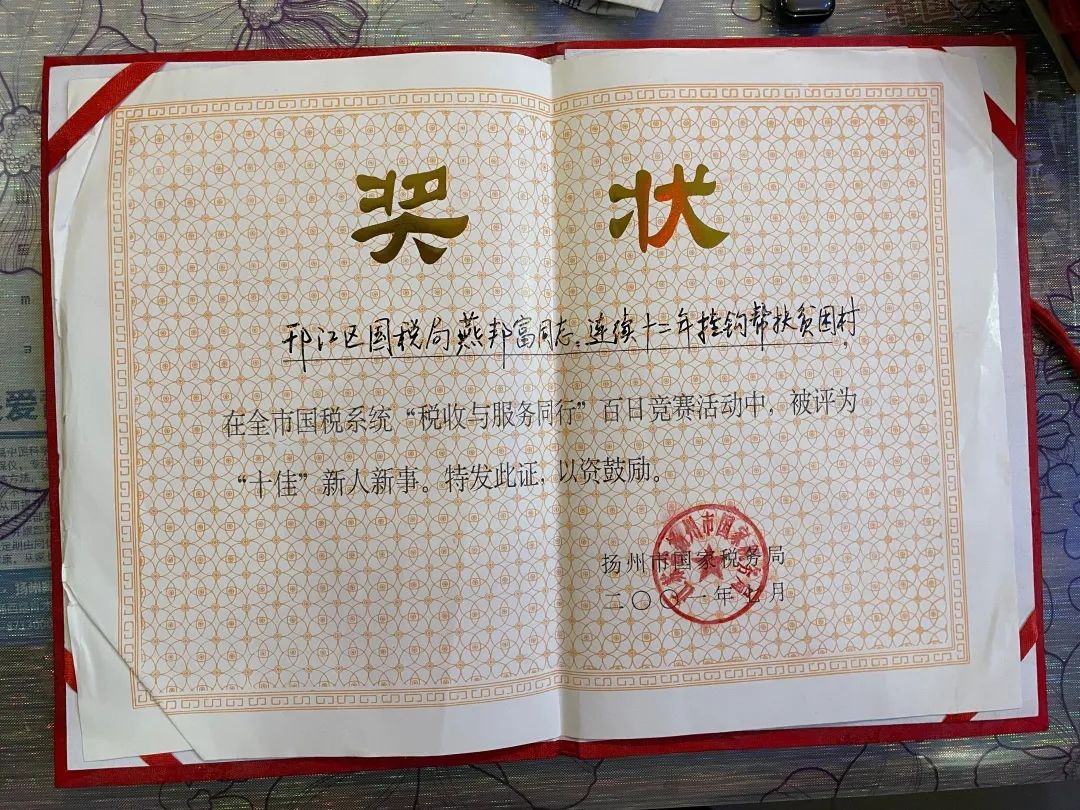 奖 状
邗江区国税局燕邦富同志:连续十二年挂钩帮扶贫困村,
在全市国税系统“税收与服务同行”百日竞赛活动中,被评为
“十佳”新人新事。特发此证,以资鼓励。
扬州市国家税务局
二〇〇一年七月